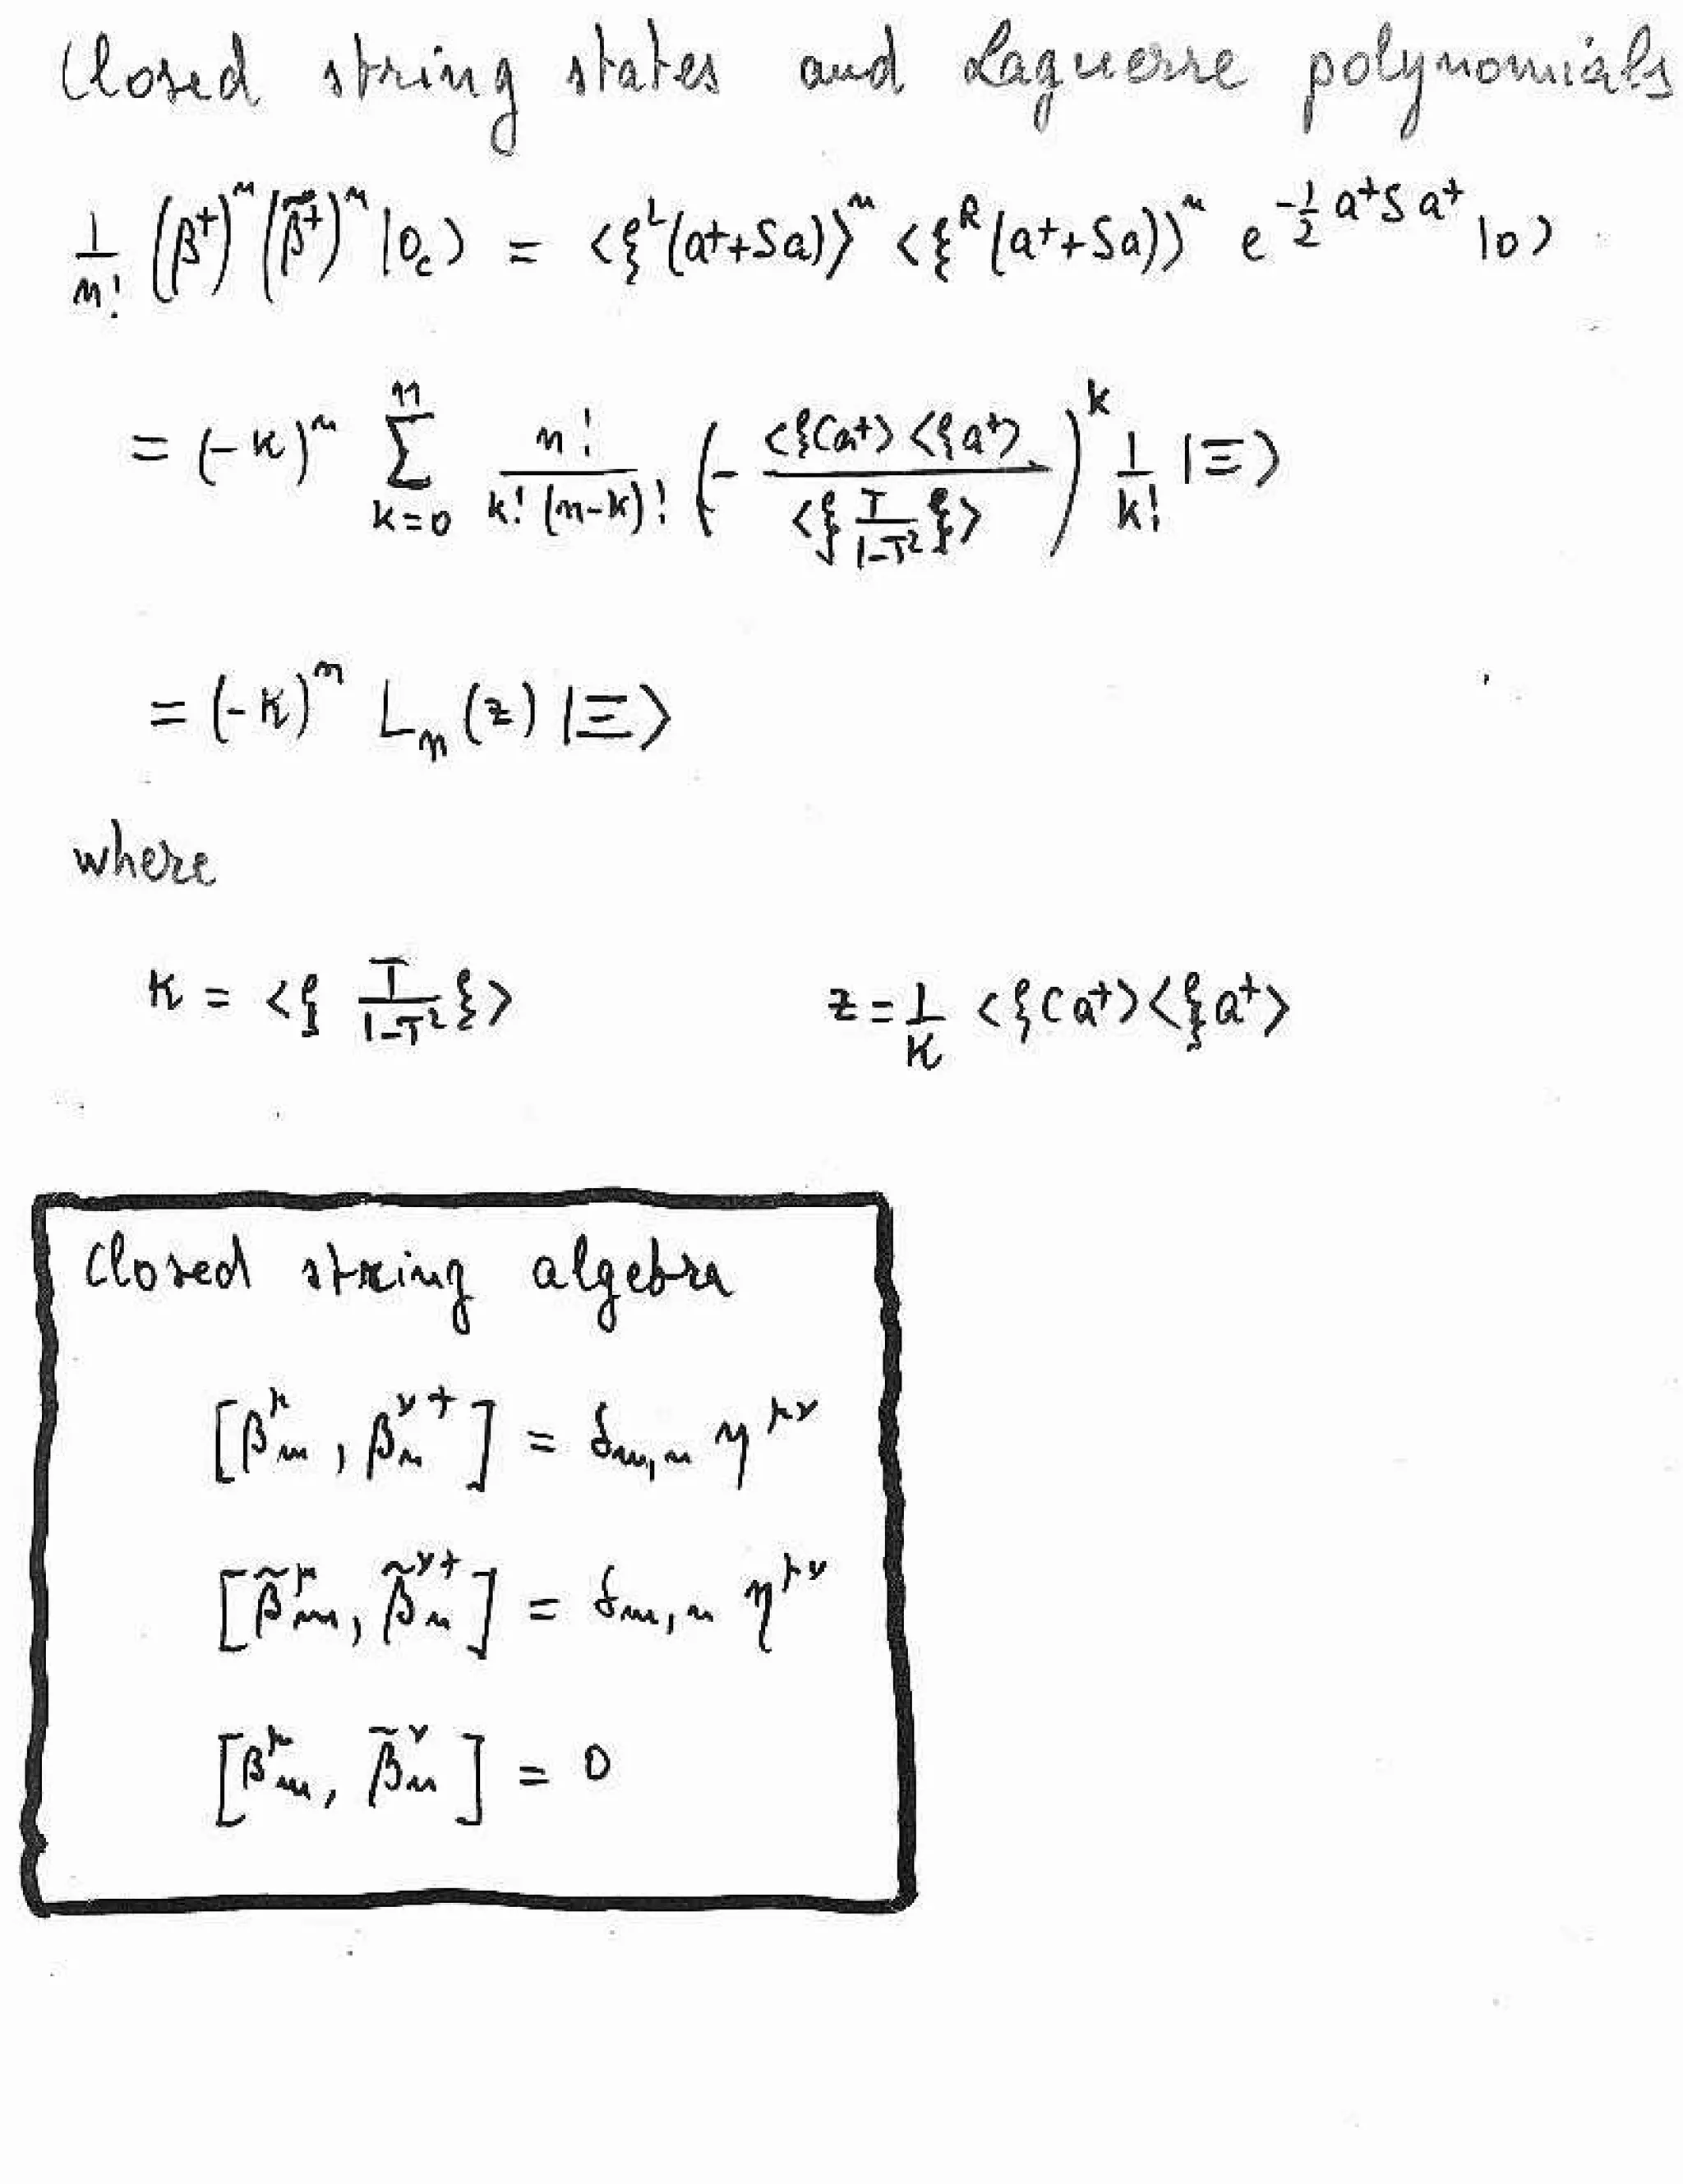 Closed string states and Laguerre polynomials
1/n! (β⁺)ⁿ (β̃⁺)ⁿ |0_c⟩ = ⟨ξᴸ(a⁺+Sa)⟩ⁿ ⟨ξᴿ(a⁺+Sa)⟩ⁿ e^{-½ a⁺S a⁺} |0⟩
= (-κ)ⁿ Σ_{k=0}^{n} n!/(k!(n-k)!) (- ⟨ξCa⁺⟩⟨ξa⁺⟩ / ⟨ξ T/(1-T²) ξ⟩)^k 1/k! |Ξ⟩
= (-κ)ⁿ L_n(z) |Ξ⟩
where
κ = ⟨ξ T/(1-T²) ξ⟩ z = 1/κ ⟨ξCa⁺⟩⟨ξa⁺⟩
Closed string algebra
[β^μ_m, β^{ν+}_n] = δ_{m,n} η^{μν}
[β̃^μ_m, β̃^{ν+}_n] = δ_{m,n} η^{μν}
[β^μ_m, β̃^ν_n] = 0